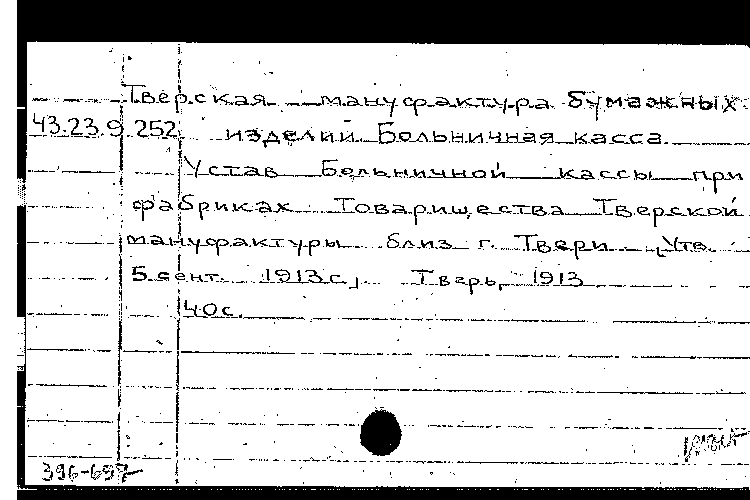 Тверская мануфактура бумажных
43.23.9.252. изделий. Больничная касса.
Устав Больничной кассы при
фабриках Товарищества Тверской
мануфактуры близ г. Твери. [Утв.
5 сент. 1913 г.]. Тверь, 1913
40с.
396-697